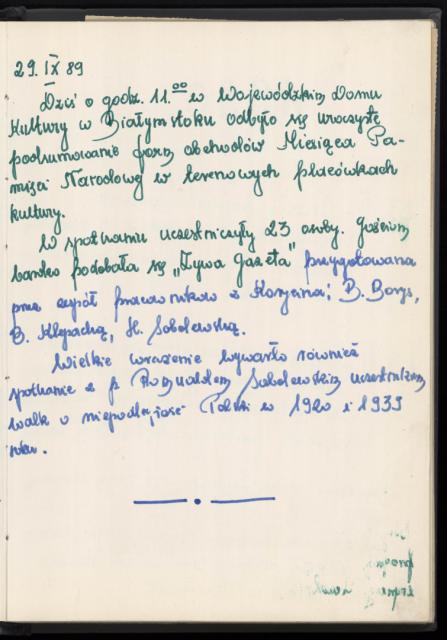 29. IX 89
Dziś o godz. 11.00 w Wojewódzkim Domu
Kultury w Białymstoku odbyło się uroczyste
podsumowanie form obchodów Miesiąca Pa-
mięci Narodowej w terenowych placówkach
kultury.
W spotkaniu uczestniczyły 23 osoby. Gościom
bardzo podobała się „Żywa Gazeta" przygotowana
przez zespół pracowników z Korycina; B. Borys,
B. Klepacką, H. Sobolewską.
Wielkie wrażenie wywarło również
spotkanie z p. Romualdem Sobolewskim uczestnikiem
walk o niepodległość Polski w 1920 i 1939
roku.